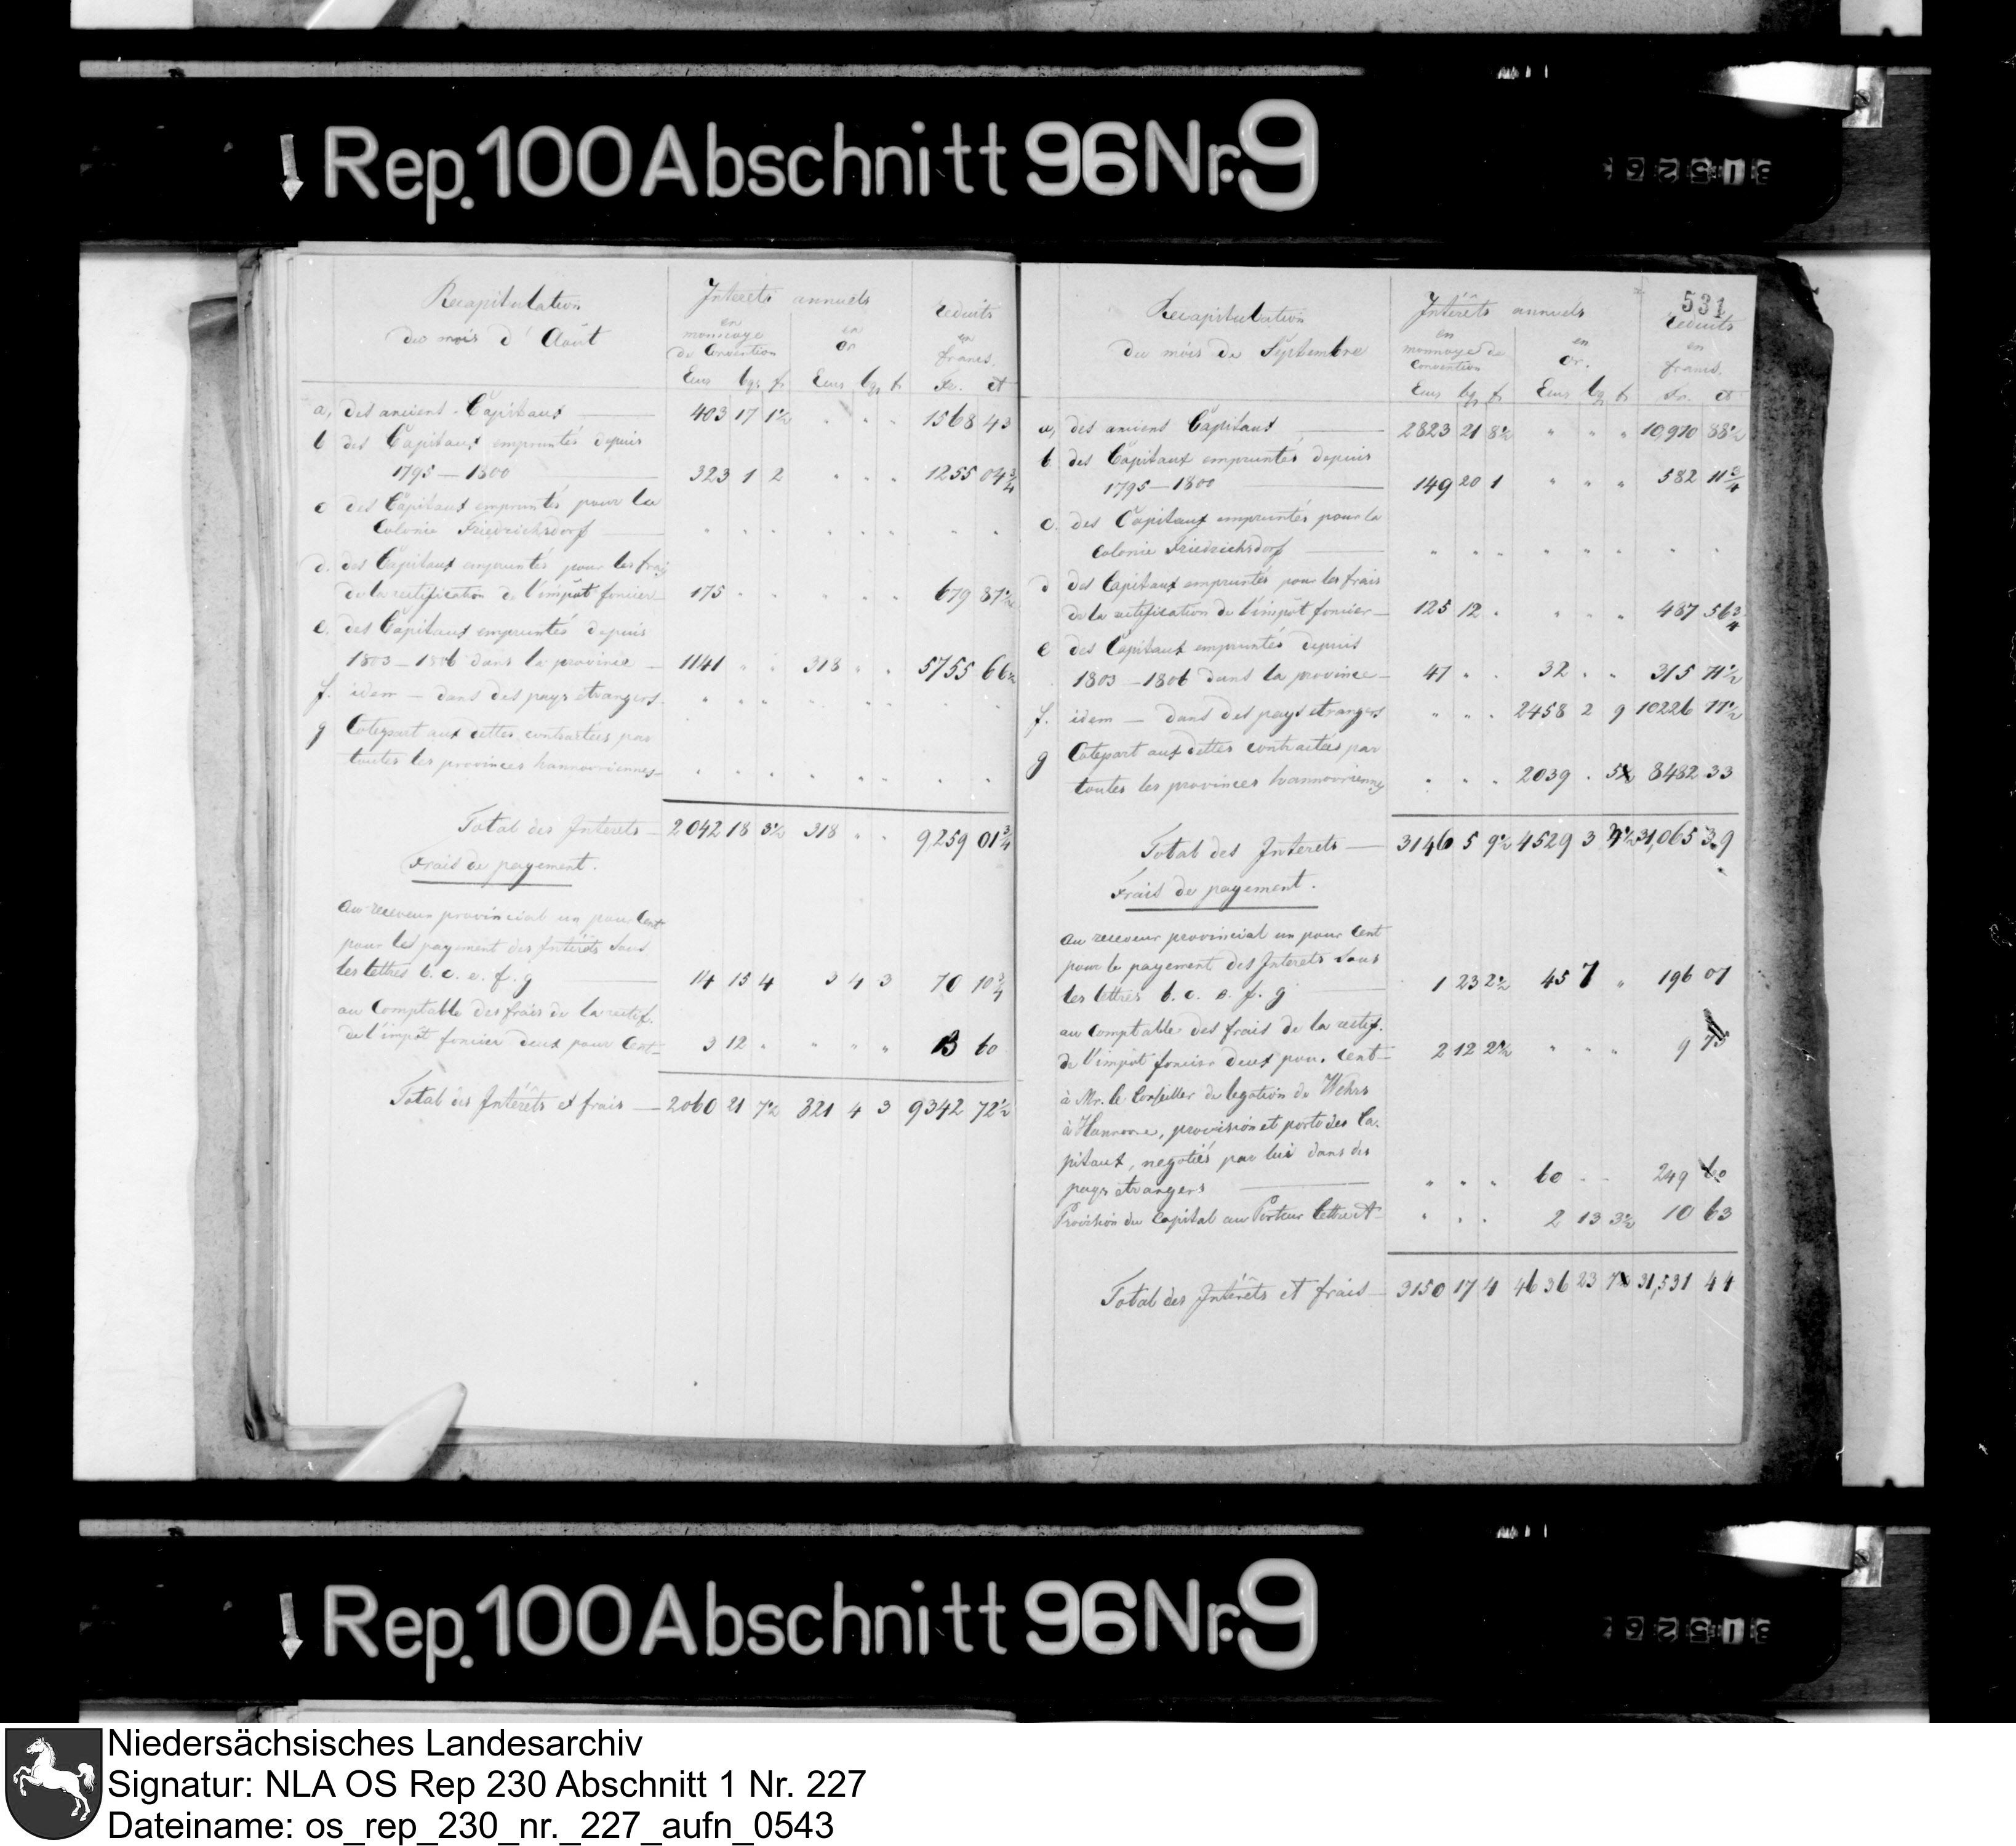 Rep. 100 Abschnitt 96 Nr. 9
Recapitulation
du mois d'Août
Interêts annuels
en monnoye de Convention
en or
reduits en francs.
Ecus bgs ₰ Ecus bgs ₰ Fr. ct
a, des anciens Capitaux — 403 17 1½ " " " 1568 43
b des Capitaux empruntés depuis
1795 — 1800 — 323 1 2 " " " 1255 04¾
c des Capitaux empruntés pour la
Colonie Friedrichsdorf — " " " " " " " "
d. des Capitaux empruntés pour les frais
de la rectification de l'impôt foncier — 175 " " " " " 679 87½
e. des Capitaux empruntés depuis
1803 — 1806 dans la province — 1141 " " 318 " " 5755 66½
f. idem — dans des pays étrangers " " " " " " " "
g Cotepart aux dettes contractées par
toutes les provinces hannovriennes — " " " " " " " "
Total des Interets — 2042 18 3½ 318 " " 9259 01¾
Frais de payement.
Au receveur provincial un pour Cent
pour le payement des Intérêts sous
les lettres b. c. e. f. g — 14 15 4 3 4 3 70 10¾
au Comptable des frais de la rectif.
de l'impôt foncier deux pour Cent — 3 12 " " " " 13 60
Total des Intérêts et frais — 2060 21 7½ 321 4 3 9342 72½
531
Recapitulation
du mois de Septembre
Intérêts annuels
en monnoye de Convention
en or.
reduits en francs.
Ecus bgs ₰ Ecus bgs ₰ Fr. ct
a, des anciens Capitaux — 2823 21 8½ " " " 10,970 88½
b. des Capitaux empruntés depuis
1795 — 1800 — 149 20 1 " " " 582 11¾
c. des Capitaux empruntés pour la
Colonie Friedrichsdorf — " " " " " " " "
d des Capitaux empruntés pour les frais
de la rectification de l'impôt foncier — 125 12 " " " " 487 56¾
e des Capitaux empruntés depuis
1803 — 1806 dans la province — 47 " " 32 " " 315 71½
f. idem — dans des pays etrangers " " " 2458 2 9 10226 77½
g Cotepart aux dettes contractées par
toutes les provinces hannovriennes " " " 2039 " 5 8482 33
Total des Interets — 3146 5 9½ 4529 3 31,065 39
Frais de payement.
Au receveur provincial un pour Cent
pour le payement des Interets sous
les lettres b. c. e. f. g — 1 23 2½ 45 7 " 196 07
au Comptable des frais de la rectif.
de l'impôt foncier deux pour Cent — 2 12 2½ " " " 9 75
à Mr. le Conseiller de legation de Wehrs
à Hannovre, provision et porto des Ca-
pitaux, negotiés par lui dans des
pays etrangers — " " " 60 - - 249 60
Provision du Capital au Porteur lettre A — " " " 2 13 3½ 10 63
Total des Intérêts et frais — 3150 17 4 4636 23 31,531 44
Rep. 100 Abschnitt 96 Nr. 9
Niedersächsisches Landesarchiv
Signatur: NLA OS Rep 230 Abschnitt 1 Nr. 227
Dateiname: os_rep_230_nr._227_aufn_0543